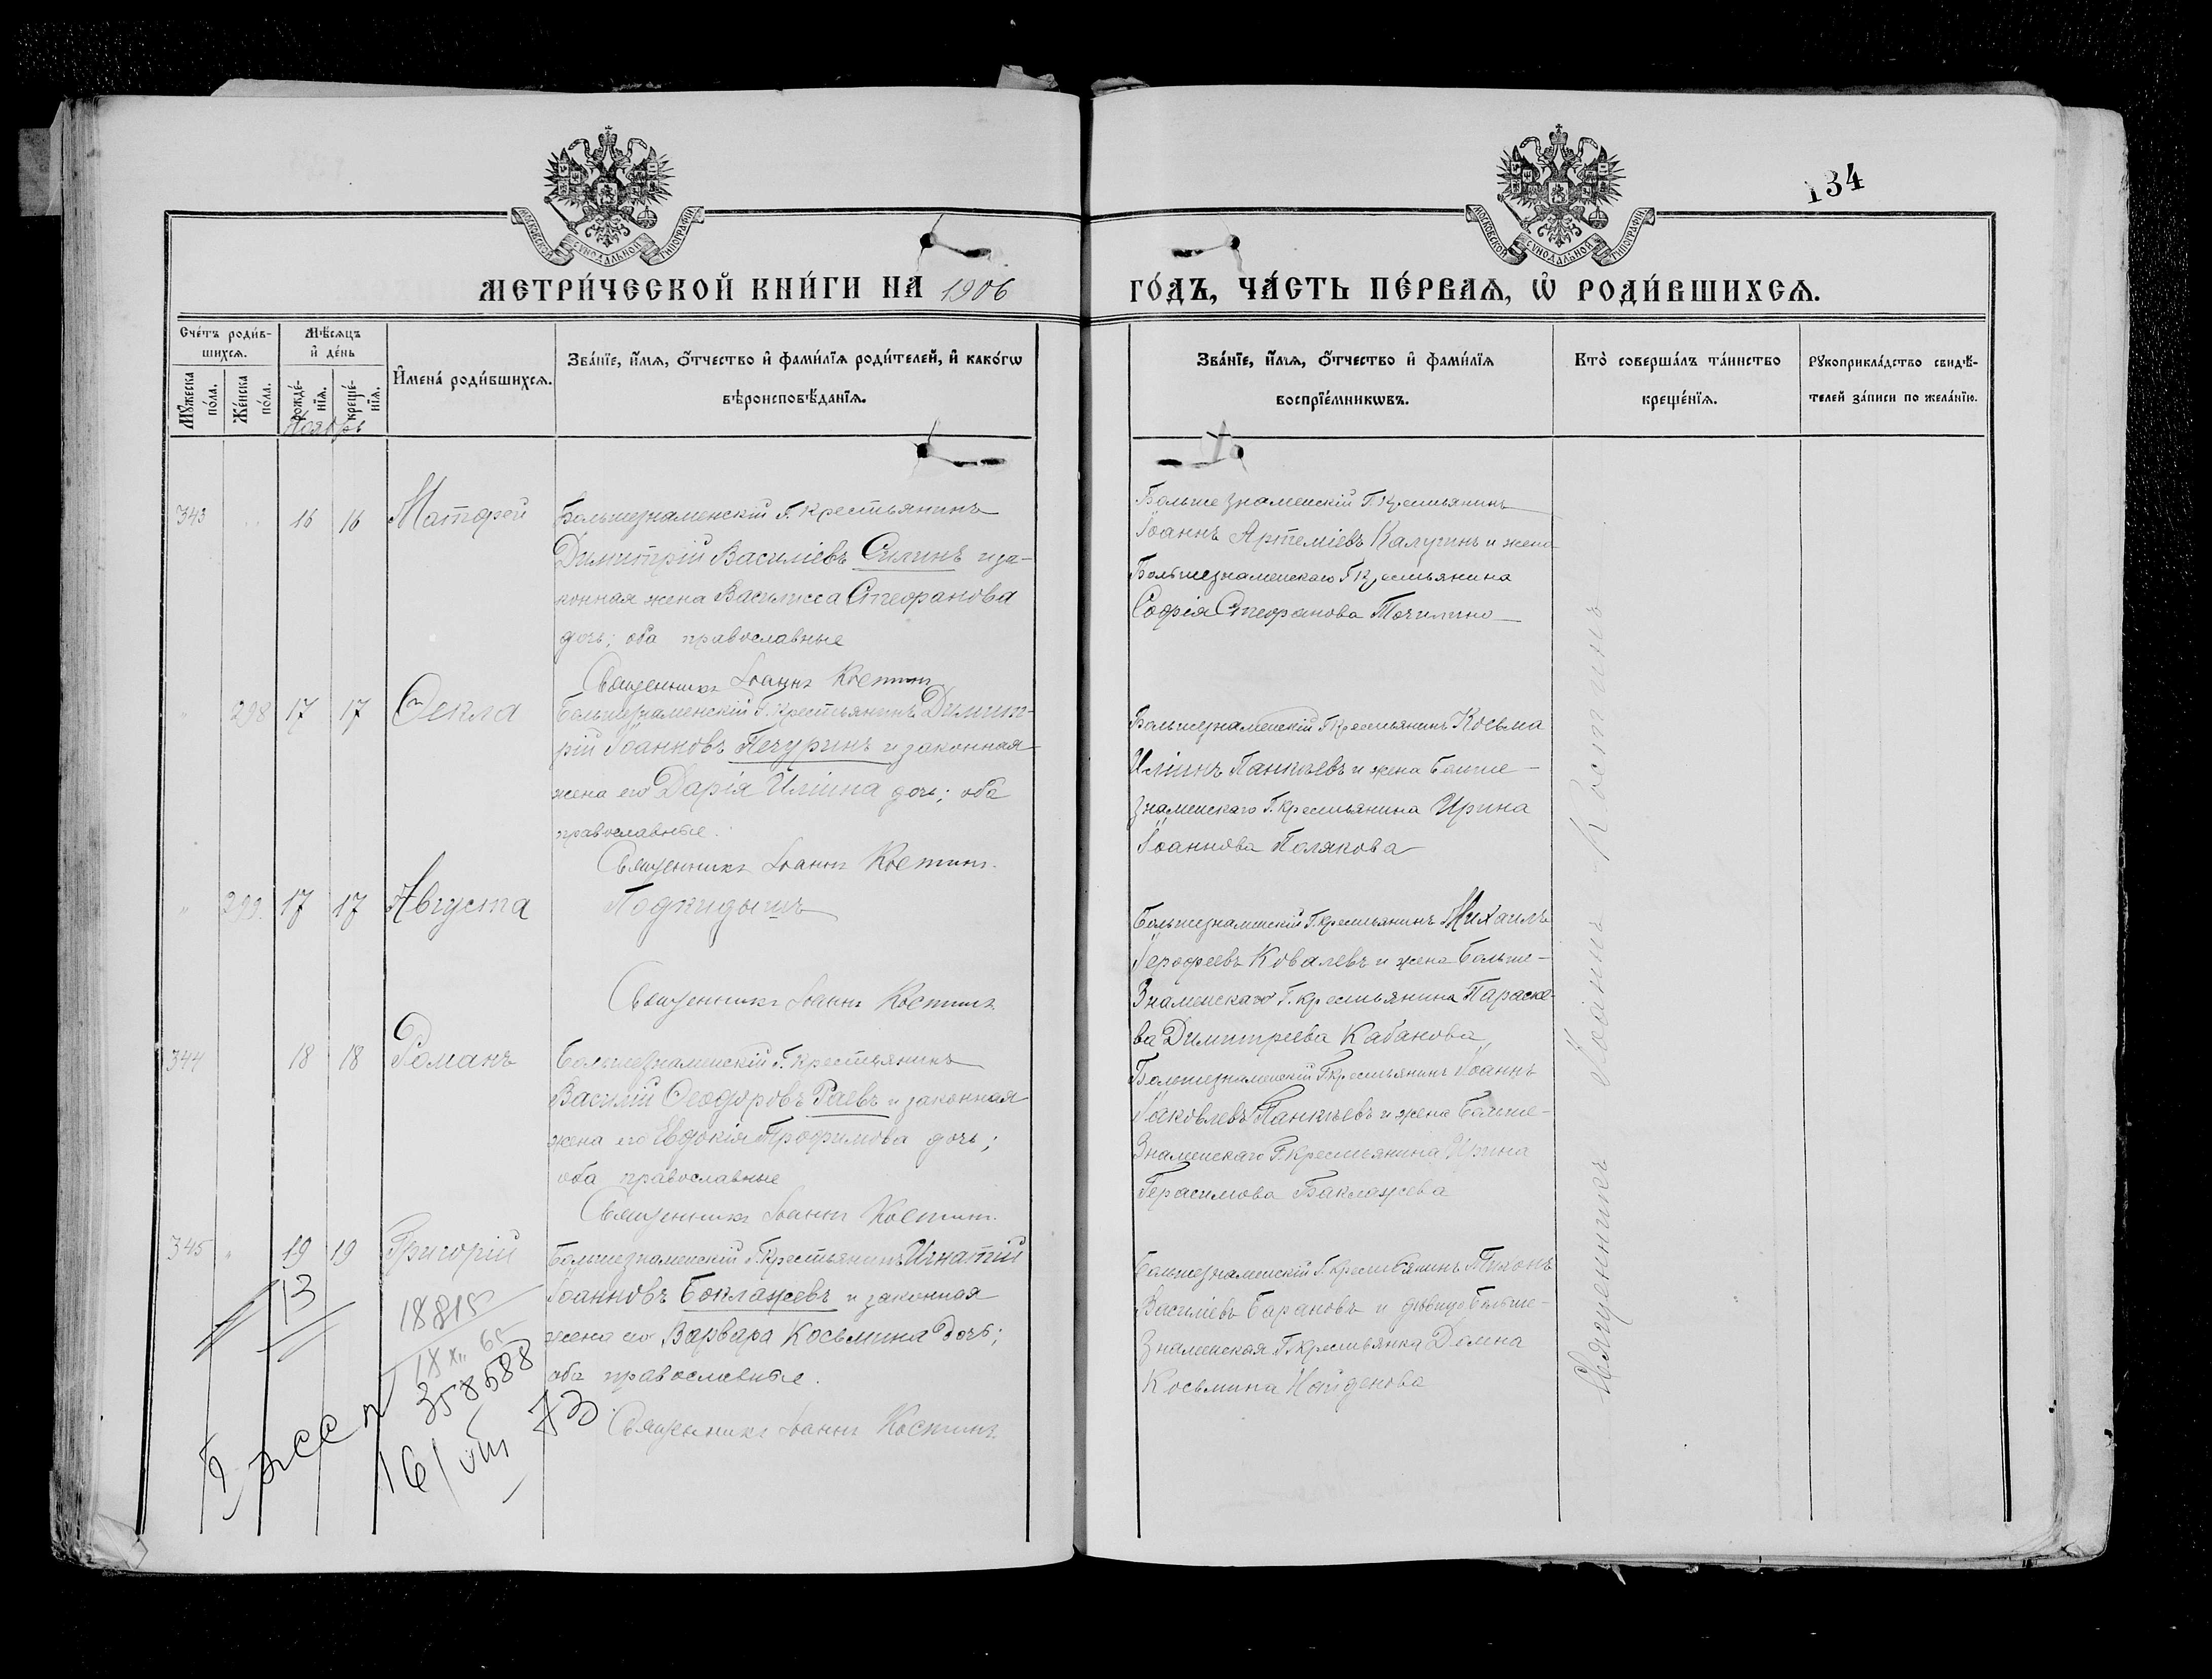 134
МОСКОВСКОЙ СѴНОДАЛЬНОЙ ТИПОГРАФІИ
МОСКОВСКОЙ СѴНОДАЛЬНОЙ ТИПОГРАФІИ
МЕТРИ́ЧЕСКОЙ КНИ́ГИ НА 1906
ГО́ДЪ, ЧА́СТЬ ПЕ́РВАѦ, Ѽ РОДИ́ВШИХСѦ.
Сче́тъ роди́в-
шихсѧ.
Мꙋ́жеска по́ла.
Же́нска по́ла.
Мѣ́сѧцъ
и҆ де́нь
рожде́-
нїѧ.
креще́-
нїѧ.
Ноябрь
И҆мена̀ роди́вшихсѧ.
Зва́нїе, и҆́мѧ, ѻ҆́тчество и҆ фами́лїѧ роди́телей, и҆ како́гѡ
вѣроисповѣ́данїѧ.
Зва́нїе, и҆́мѧ, ѻ҆́тчество и҆ фами́лїѧ
воспрїе́мникѡвъ.
Кто̀ соверша́лъ та́инство
креще́нїѧ.
Рꙋкоприкла́дство свидѣ́-
телей за́писи по жела́нїю.
343 16 16 Матфей
Большезнаменскій Г. Крестьянинъ
Димитрій Василіевъ Силинъ и за-
конная жена Василисса Стефанова
дочь; оба православные
Священникъ Іоаннъ Костинъ
Большезнаменскій Г. Крестьянинъ
Іоаннъ Артеміевъ Калугинъ и жена
Большезнаменскаго Г. Крестьянина
Софія Стефанова Точилина
" 298 17 17 Ѳекла
Большезнаменскій Г. Крестьянинъ Димит-
рій Іоанновъ Печуринъ и законная
жена его Дарія Иліина дочь; оба
православные.
Священникъ Іоаннъ Костинъ.
Большезнаменскій Г. Крестьянинъ Косьма
Иліинъ Панкѣевъ и жена Больше-
знаменскаго Г. Крестьянина Ирина
Іоаннова Полякова
" 299. 17 17 Августа
Подкидышъ
Священникъ Іоаннъ Костинъ
Большезнаменскій Г. Крестьянинъ Михаилъ
Іерофеевъ Ковалевъ и жена Больше-
Знаменскаго Г. крестьянина Параске-
ва Димитреева Кабанова
344 18 18 Романъ
Большезнаменскій Г. Крестьянинъ
Василій Ѳеодоровъ Раевъ и законная
жена его Евдокія Трофимова дочь;
оба православные
Священникъ Іоаннъ Костинъ.
Большезнаменскій Г. Крестьянинъ Іоаннъ
Іаковлевъ Панкѣевъ и жена Больше-
Знаменскаго Г. Крестьянина Ирина
Герасимова Баклажева
345 " 19 19 Григорій
Большезнаменскій Г. Крестьянинъ Игнатій
Іоанновъ Боклажевъ и законная
жена его Варвара Косьмина дочь;
оба православные.
Священникъ Іоаннъ Костинъ
Большезнаменскій Г. Крестьянинъ Тихонъ
Василіевъ Барановъ и девица Больше-
Знаменская Г. Крестьянка Домна
Косьмина Найденова
Священникъ Іоаннъ Костинъ
13
18815
18 XII 65
358588
16/VIII 73